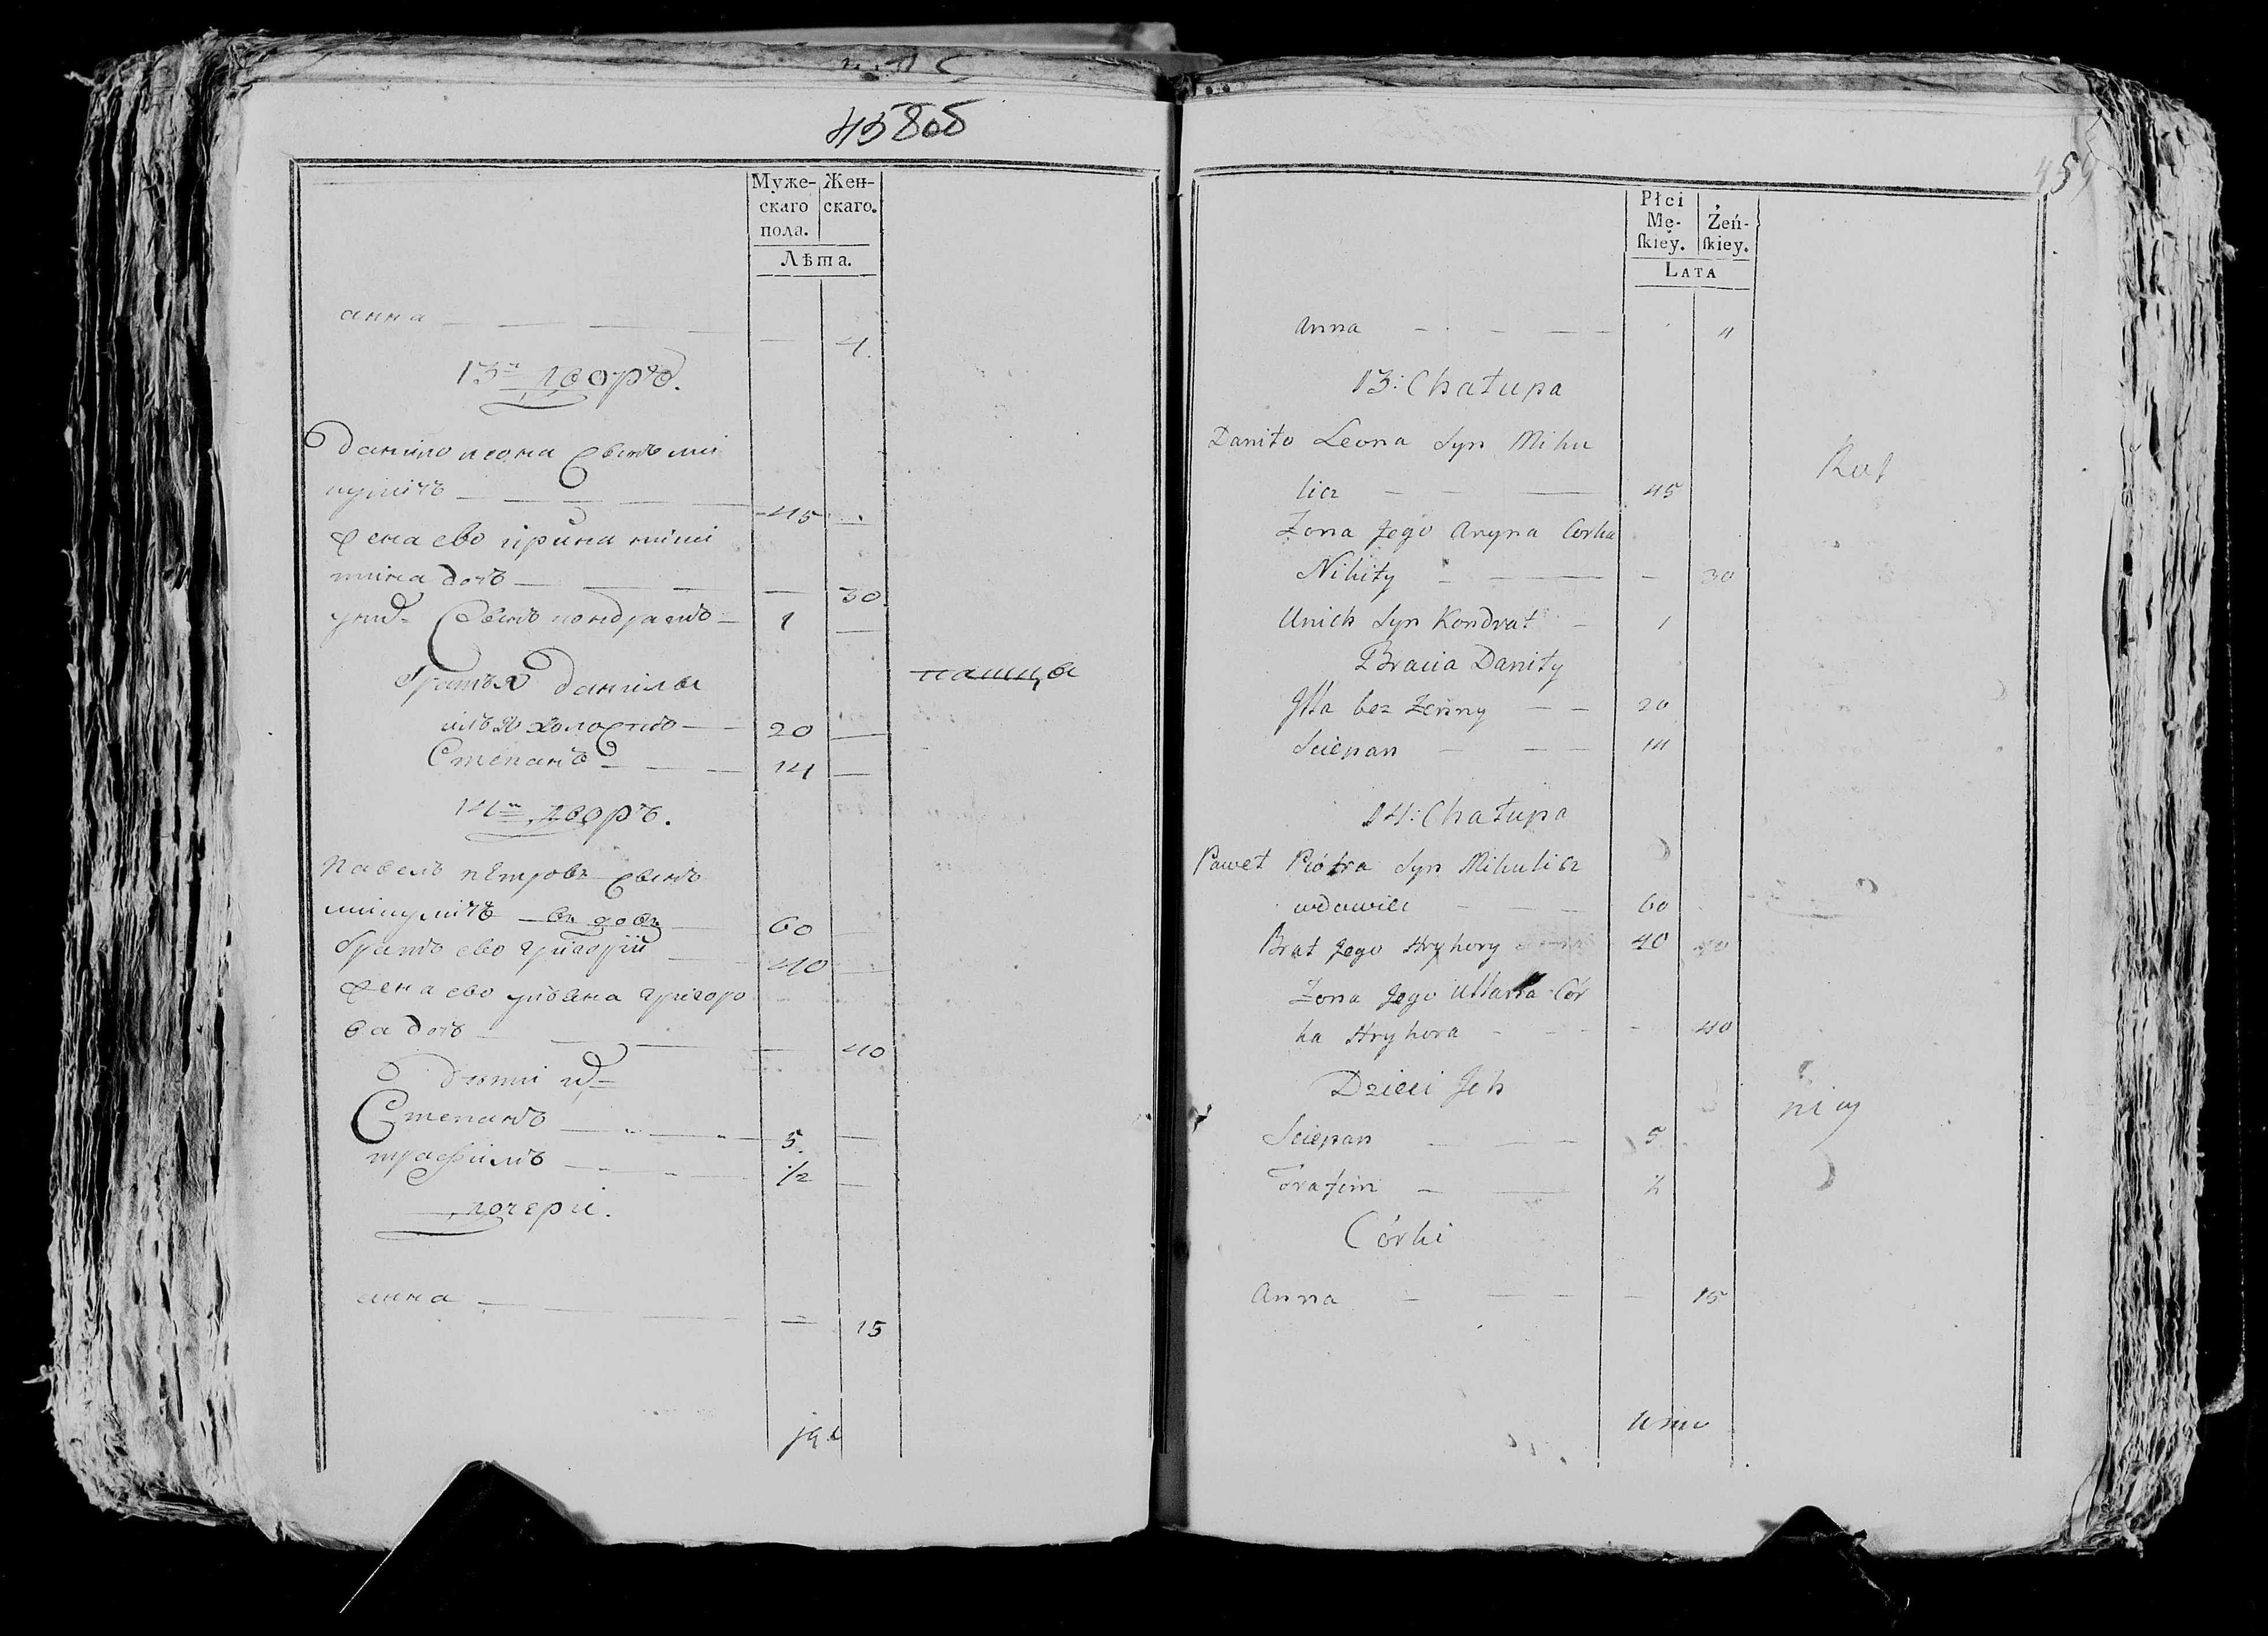 458об
Муже- Жен-
скаго скаго.
пола.
Лѣта.
анна — — — — — 4.
13й дворъ.
Данило леона Сынъ ми
кулічъ — — — 45 —
жена ево ірина ники
тина дочъ — — — 30
у нихъ Сынъ кондратъ — 1 —
братья данилы
илья холостъ — 20 —
Степанъ — — 14 —
14й дворъ.
павелъ петровъ сынъ
микулічъ — вдовъ — 60 —
братъ ево григорій — 40 —
жена ево ульяна григоро
ва дочъ — — — 40
дѣти ихъ
Степанъ — — — 5. —
трафимъ — — — 1/2 —
дочери.
анна — — — — 15
459
Płci
Mę- Żeń-
ſkiey. ſkiey.
LATA
Anna — — — — 4
13: Chałupa
Daniło Leona Syn Miku
licz — — — 45
Żona Jego Aryna Corka
Nikity — — — 30
Unich Syn Kondrat — 1
Bracia Daniły
Illa bez Żenny — — 20
Sciepan — — — 14
14: Chałupa
Paweł Piótra Syn Mikulicz
wdowiec — — — 60
Brat Jego Hryhory 40
Żona Jego Ullana Cór
ka Hryhora — — — 40
Dzieci Jch
Sciepan — — — 5
Trafim — — ½
Córki
Anna — — — — 15